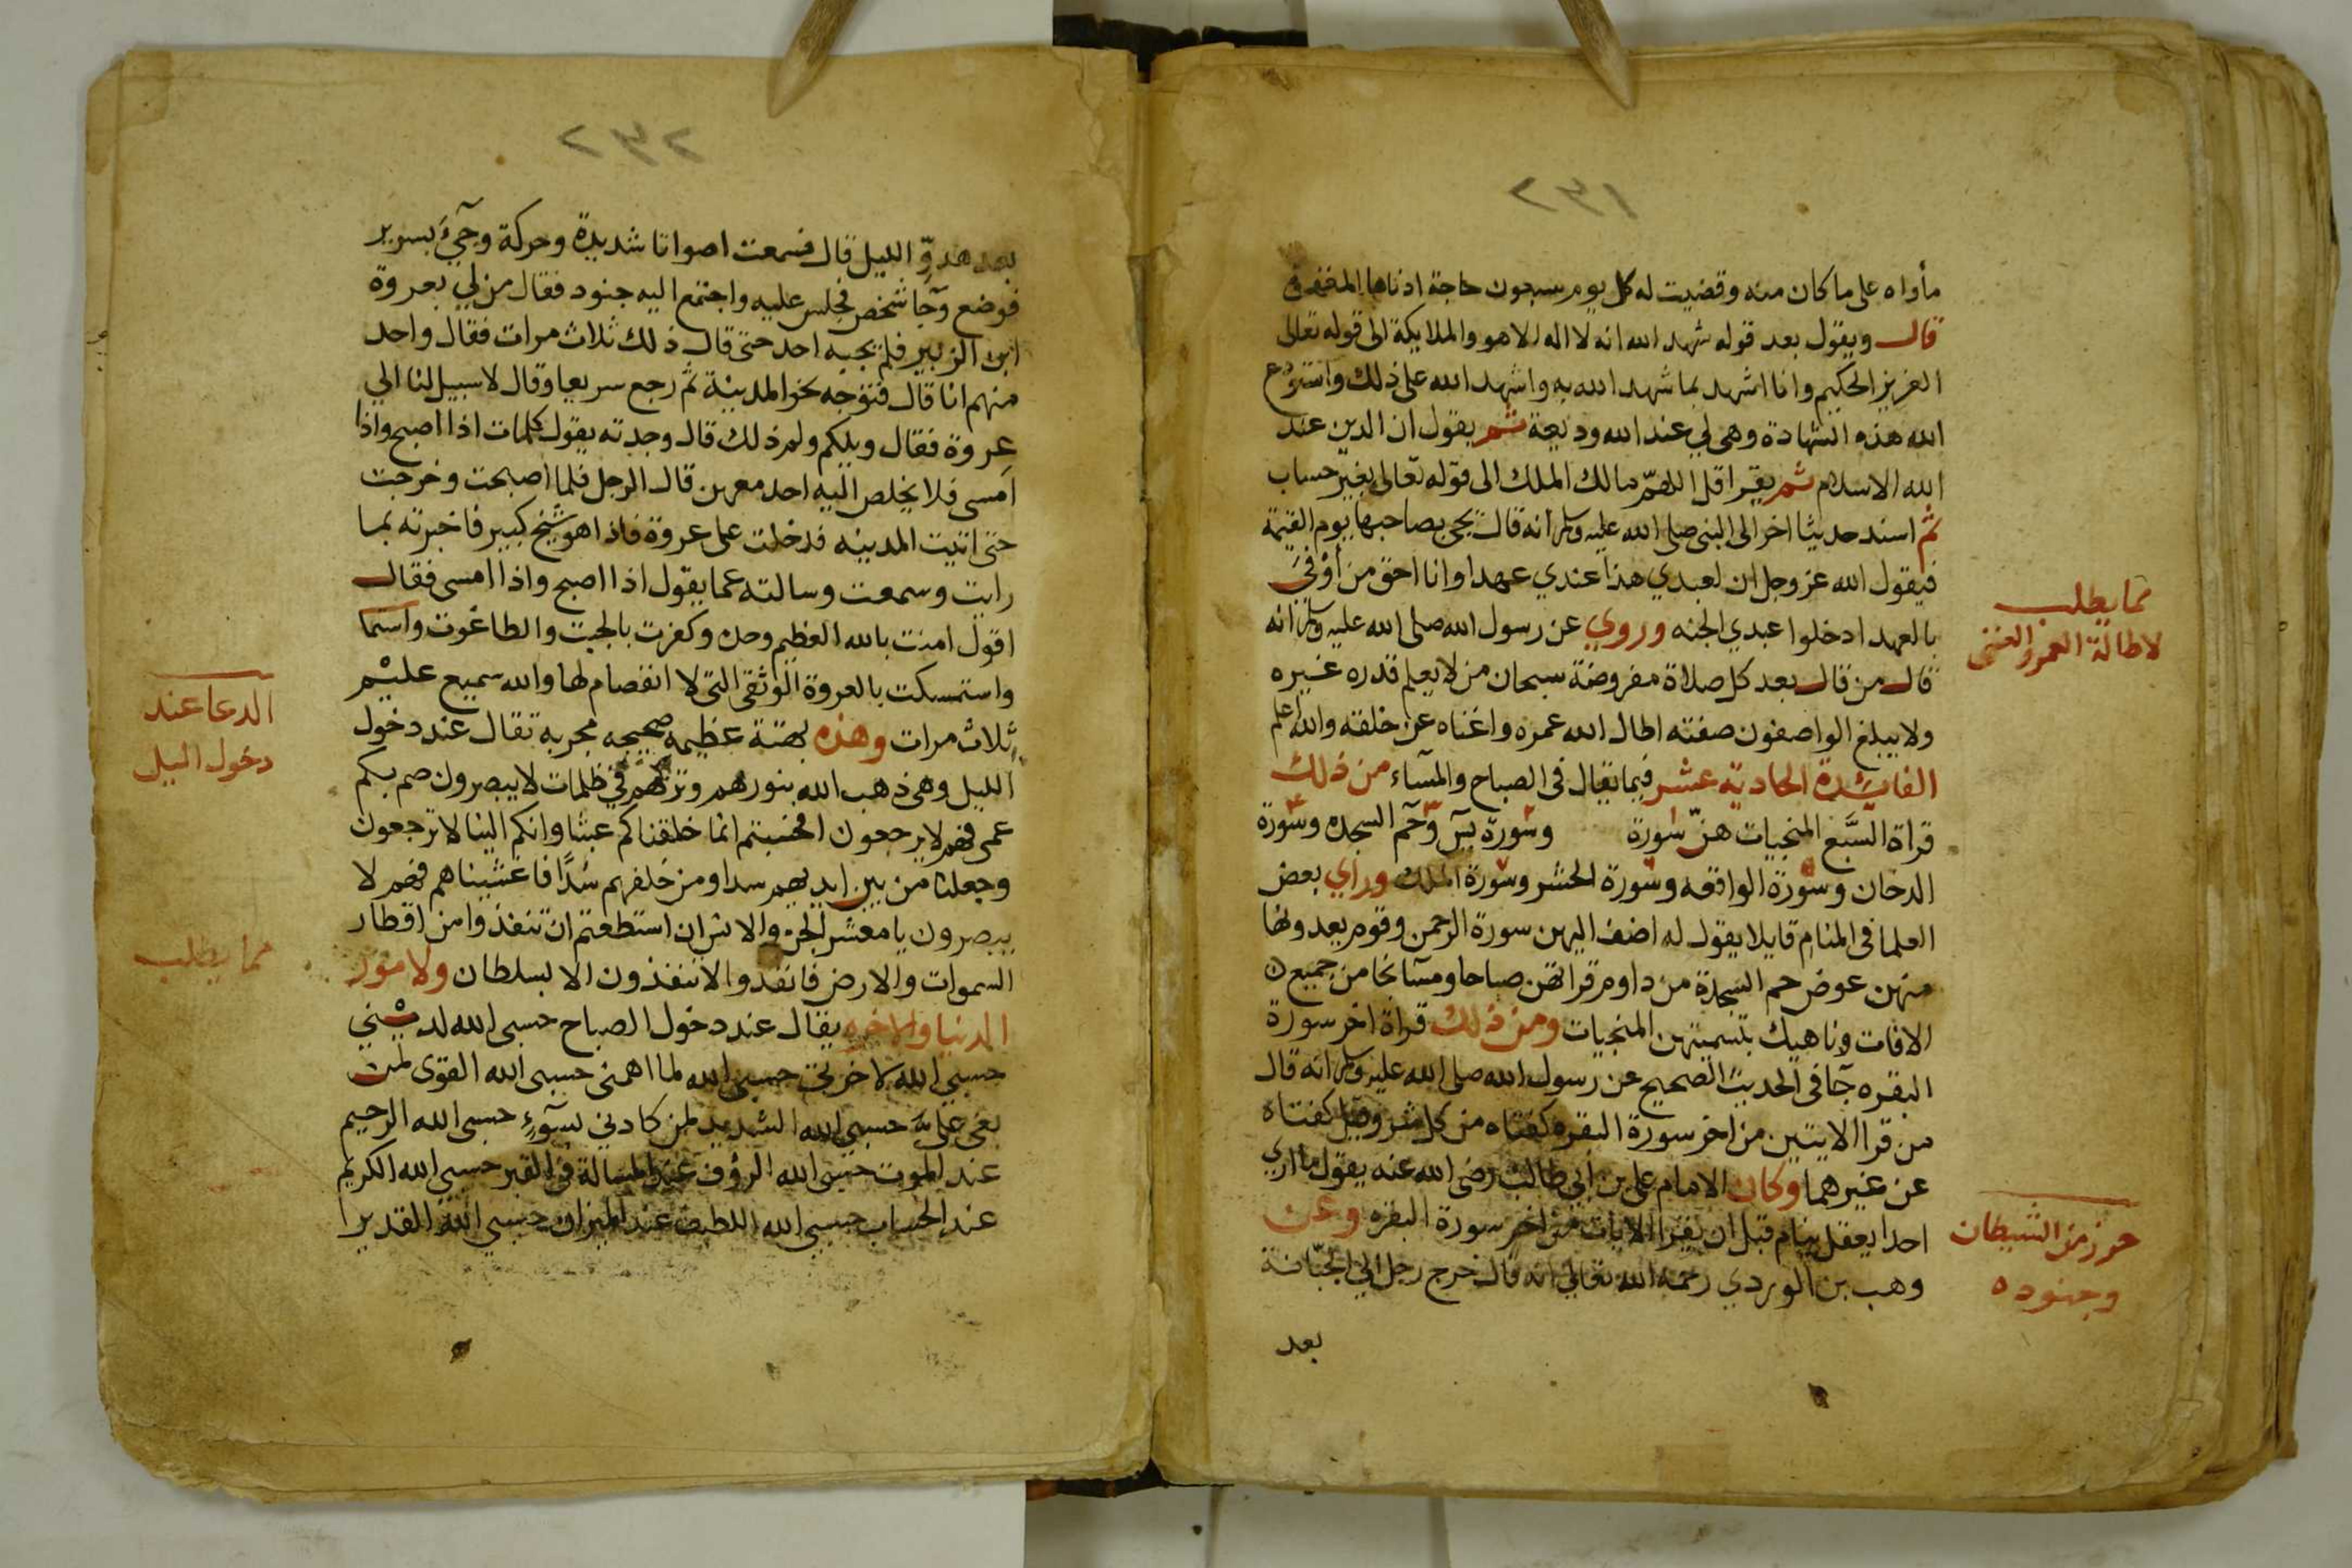 مأواه على ما كان منه وقضيت له كل يوم سبعون حاجة ادناها المغفرة
قال ويقول بعد قوله شهد الله انه لا اله الا هو والملايكة الى قوله تعالى
العزيز الحكيم وانا اشهد بما شهد الله به واشهد الله على ذلك واستودع
الله هذه الشهادة وهى لي عند الله وديعة ثم يقول ان الدين عند
الله الاسلام ثم يقرا قل اللهم مالك الملك الى قوله تعالى بغير حساب
ثم اسند حديثا اخر الى النبى صلى الله عليه وسلم انه قال يجى بصاحبها يوم القيمة
فيقول الله عز وجل ان لعبدي هذا عندي عهدا وانا احق من أوفىَ
بالعهد ادخلوا عبدي الجنه وروي عن رسول الله صلى الله عليه وسلم انه
قال من قال بعد كل صلاة مفروضة سبحان من لا يعلم قدره غيره
ولا يبلغ الواصفون صفته اطال الله عمره واغناه عن خلقه والله اعلم
الفائدة الحادية عشر فيما يقال فى الصباح والمسآء من ذلك
قراة السَّبع المنجيات هنّ سورة وسورة يسٓ وحٓم السجده وسورة
الدخان وسورة الواقعه وسورة الحشر وسورة الملك وراي بعض
العلما فى المنام قايلا يقول له اضف اليهن سورة الرحمن وقوم يعدونها
منهن عوض حم السجدة من داوم قراتهن صباحا ومسآ نجا من جميع
الافات وناهيك بتسميتهن المنجيات ومن ذلك قراة اخر سورة
البقره جآ فى الحديث الصحيح عن رسول الله صلى الله عليه وسلم انه قال
من قرا الايتين من اخر سورة البقره كفتاه من كل شر وقيل كفتاه
عن غيرهما وكان الامام على بن ابي طالب رضى الله عنه يقول ما اري
احدا يعقل ينام قبل ان يقرا الايات من اخر سورة البقره وعن
وهب بن الوردي رحمه الله تعالى انه قال خرج رجل الى الجبّانة
بعد
مما يطلب
لاطالة العمر والغنى
حرز من الشيطان
وجنوده
٢٣٢
بعد هدوّ الليل قال فسمعت اصواتا شديدة وحركة وجيٓء بسرير
فوضع وجآ شخص فجلس عليه واجتمع اليه جنود فقال من لي بعروة
ابن الزبير فلم يجبه احد حتى قال ذلك ثلاث مرات فقال واحد
منهم انا قال فتوجه نحو المدينة ثم رجع سريعا وقال لا سبيل لنا الي
عروة فقال ويلكم ولم ذلك قال وجدته يقول كلمات اذا اصبح واذا
امسى فلا يخلص اليه احد معهن قال الرجل فلما اصبحت وخرجت
حتى اتيت المدينه فدخلت على عروة فاذا هو شيخ كبير فاخبرته بما
رايت وسمعت وسالته عما يقول اذا اصبح واذا امسى فقال
اقول امنت بالله العظيم وحده وكفرت بالجبت والطاغوت
واستمسكت بالعروة الوثقى التى لا انفصام لها والله سميع عليم
ثلاث مرات وهذه عظيمه صحيحه مجربة تقال عند دخول
الليل وهى ذهب الله بنورهم وتركهم في ظلمات لا يبصرون صم بكم
عمى فهم لا يرجعون افحسبتم انما خلقناكم عبثا وانكم الينا لا ترجعون
وجعلنا من بين ايديهم سدا ومن خلفهم سدًّا فاغشيناهم فهم لا
يبصرون يا معشر الجن والانس ان استطعتم ان تنفذوا من اقطار
السموات والارض فانفذوا لا تنفذون الا بسلطان ولامور
الدنيا والاخره يقال عند دخول الصباح حسبى الله لدينى
حسبى الله لاخرتى حسبى الله لما اهمنى حسبى الله القوى لمن
بغى علىّ حسبى الله الشديد لمن كادنى بسوٓءٍ حسبى الله الرحيم
عند الموت حسبى الله الرؤف عند المسالة فى القبر حسبى الله الكريم
عند الحساب حسبى الله اللطيف عند الميزان حسبى الله القدير
الدعا عند
دخول الليل
مما يطلب